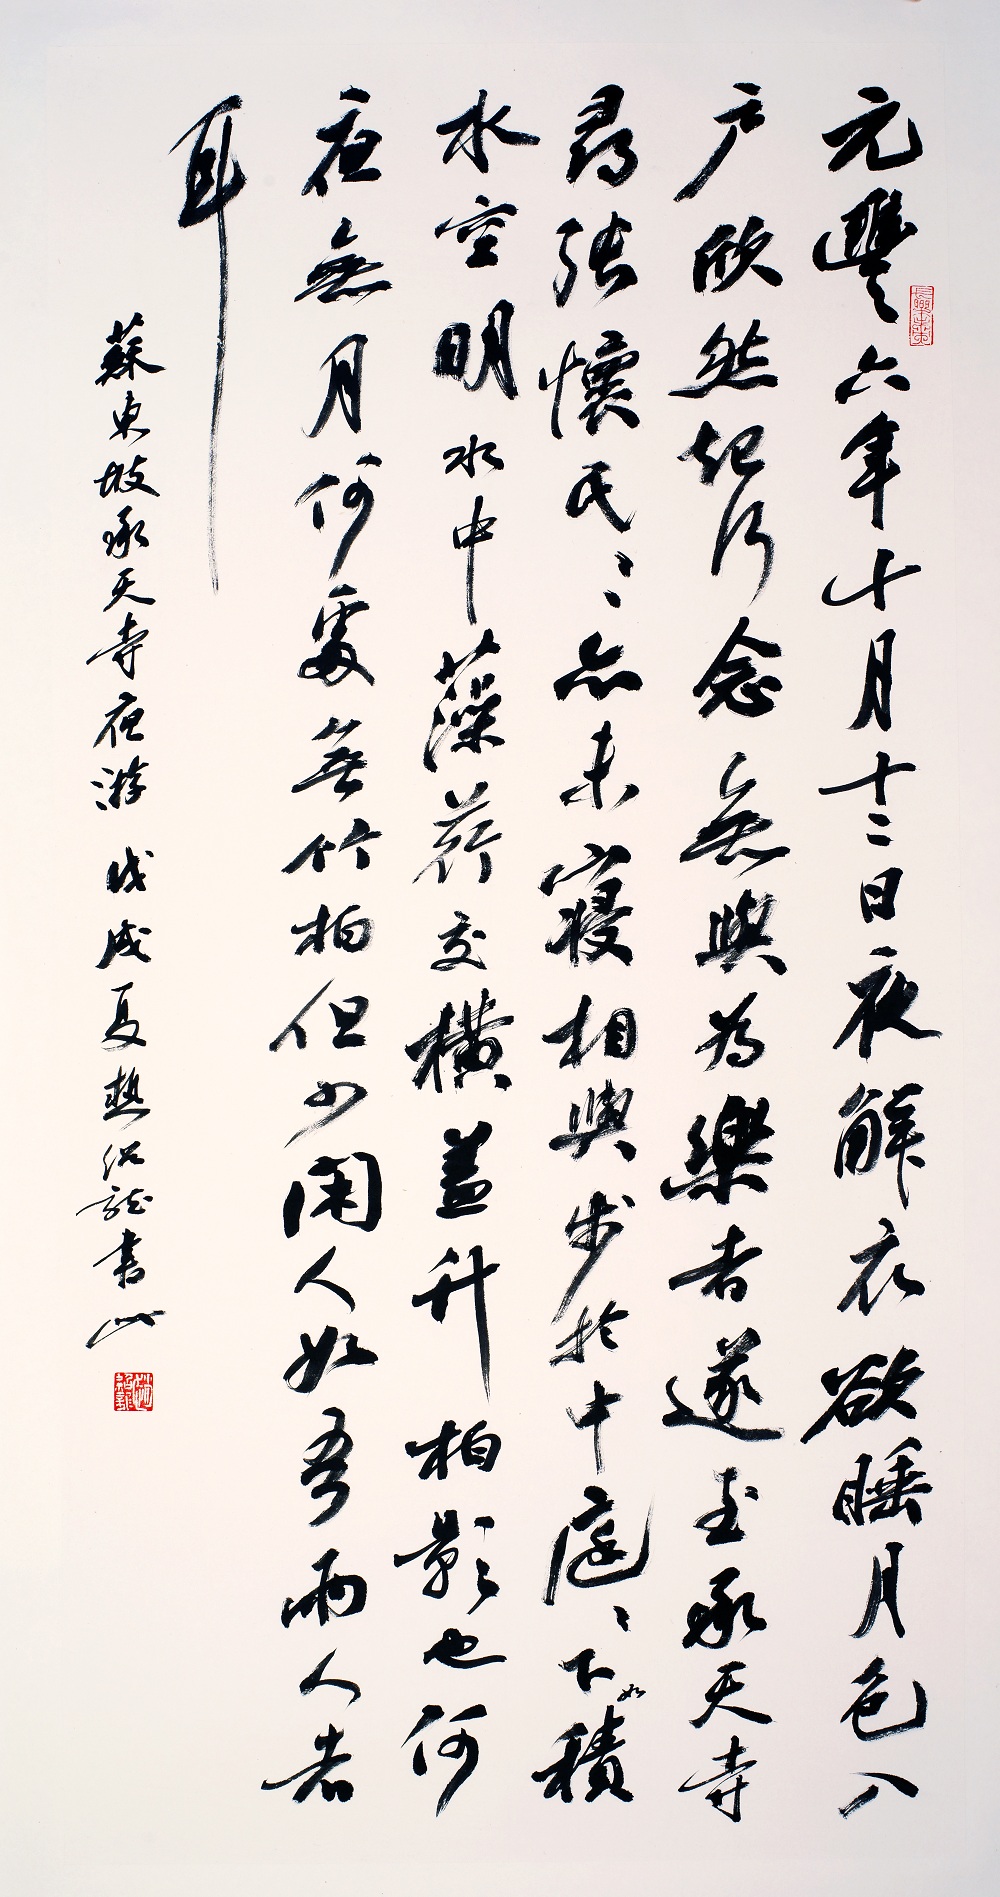 元豐六年十月十二日夜解衣欲睡月色入
户欣然起行念無與為樂者遂至承天寺
尋張懷民〻亦未寢相與步於中庭〻下如積
水空明水中藻荇交橫蓋竹柏影也何
夜無月何處無竹柏但少閑人如吾兩人者
耳
蘇東坡承天寺夜游 戊戌夏趙龍書
長樂未央